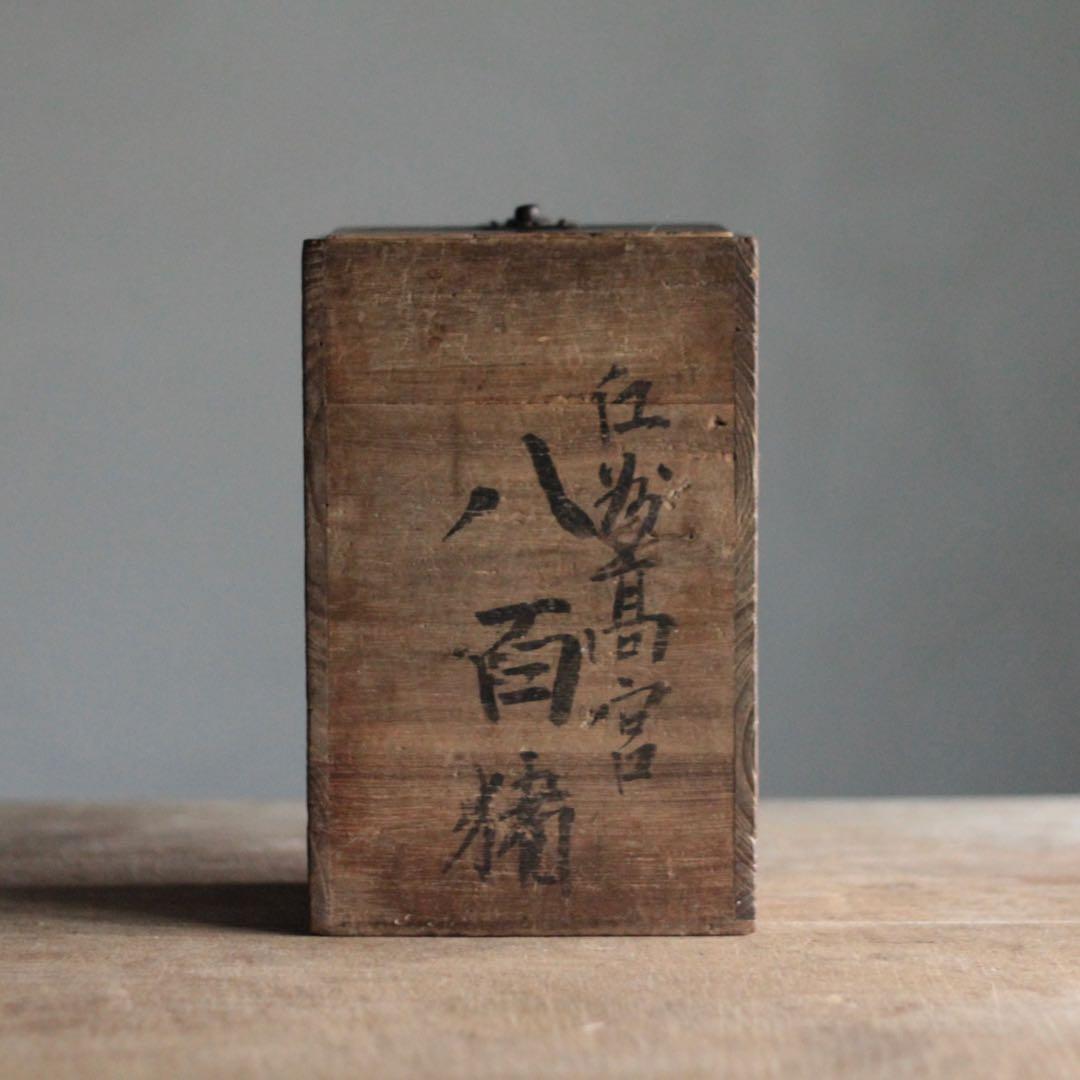 江州高宮
八百